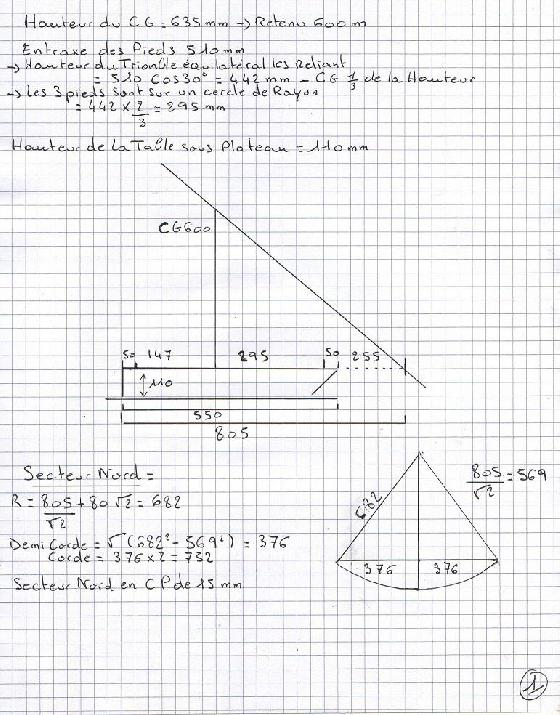 Hauteur du CG = 635 mm → Retenu 600 m
Entraxe des Pieds 510 mm
→ Hauteur du Triangle équilatéral les Reliant
= 510 Cos 30° = 442 mm - CG 1/3 de la Hauteur
→ Les 3 pieds sont sur un cercle de Rayon
= 442 x 2/3 = 295 mm
Hauteur de la Table sous Plateau = 110 mm
CG 600
50 147 295 50 255
110
550
805
Secteur Nord =
R = 805/√2 + 80√2 = 682
Demi Corde = √(682² - 569²) = 376
Corde = 376 x 2 = 752
Secteur Nord en CP de 15 mm
805/√2 = 569
682
376 376
1